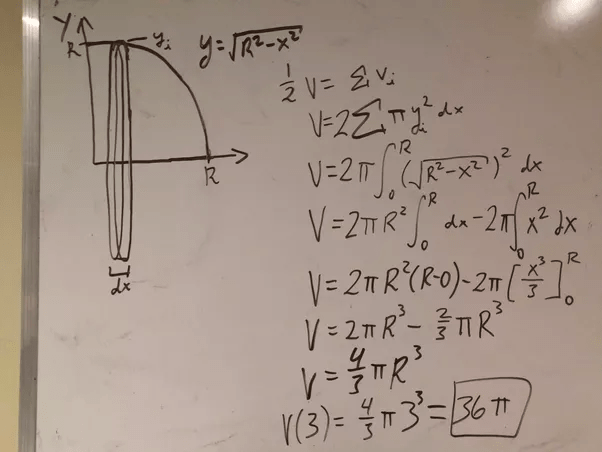 Y
R
y_i
y = √(R² − x²)
R
dx
1/2 V = Σ v_i
V = 2 Σ π y_i² dx
V = 2π ∫₀ᴿ (√(R² − x²))² dx
V = 2πR² ∫₀ᴿ dx − 2π ∫₀ᴿ x² dx
V = 2πR²(R−0) − 2π [x³/3]₀ᴿ
V = 2πR³ − 2/3 πR³
V = 4/3 πR³
V(3) = 4/3 π 3³ = 36π